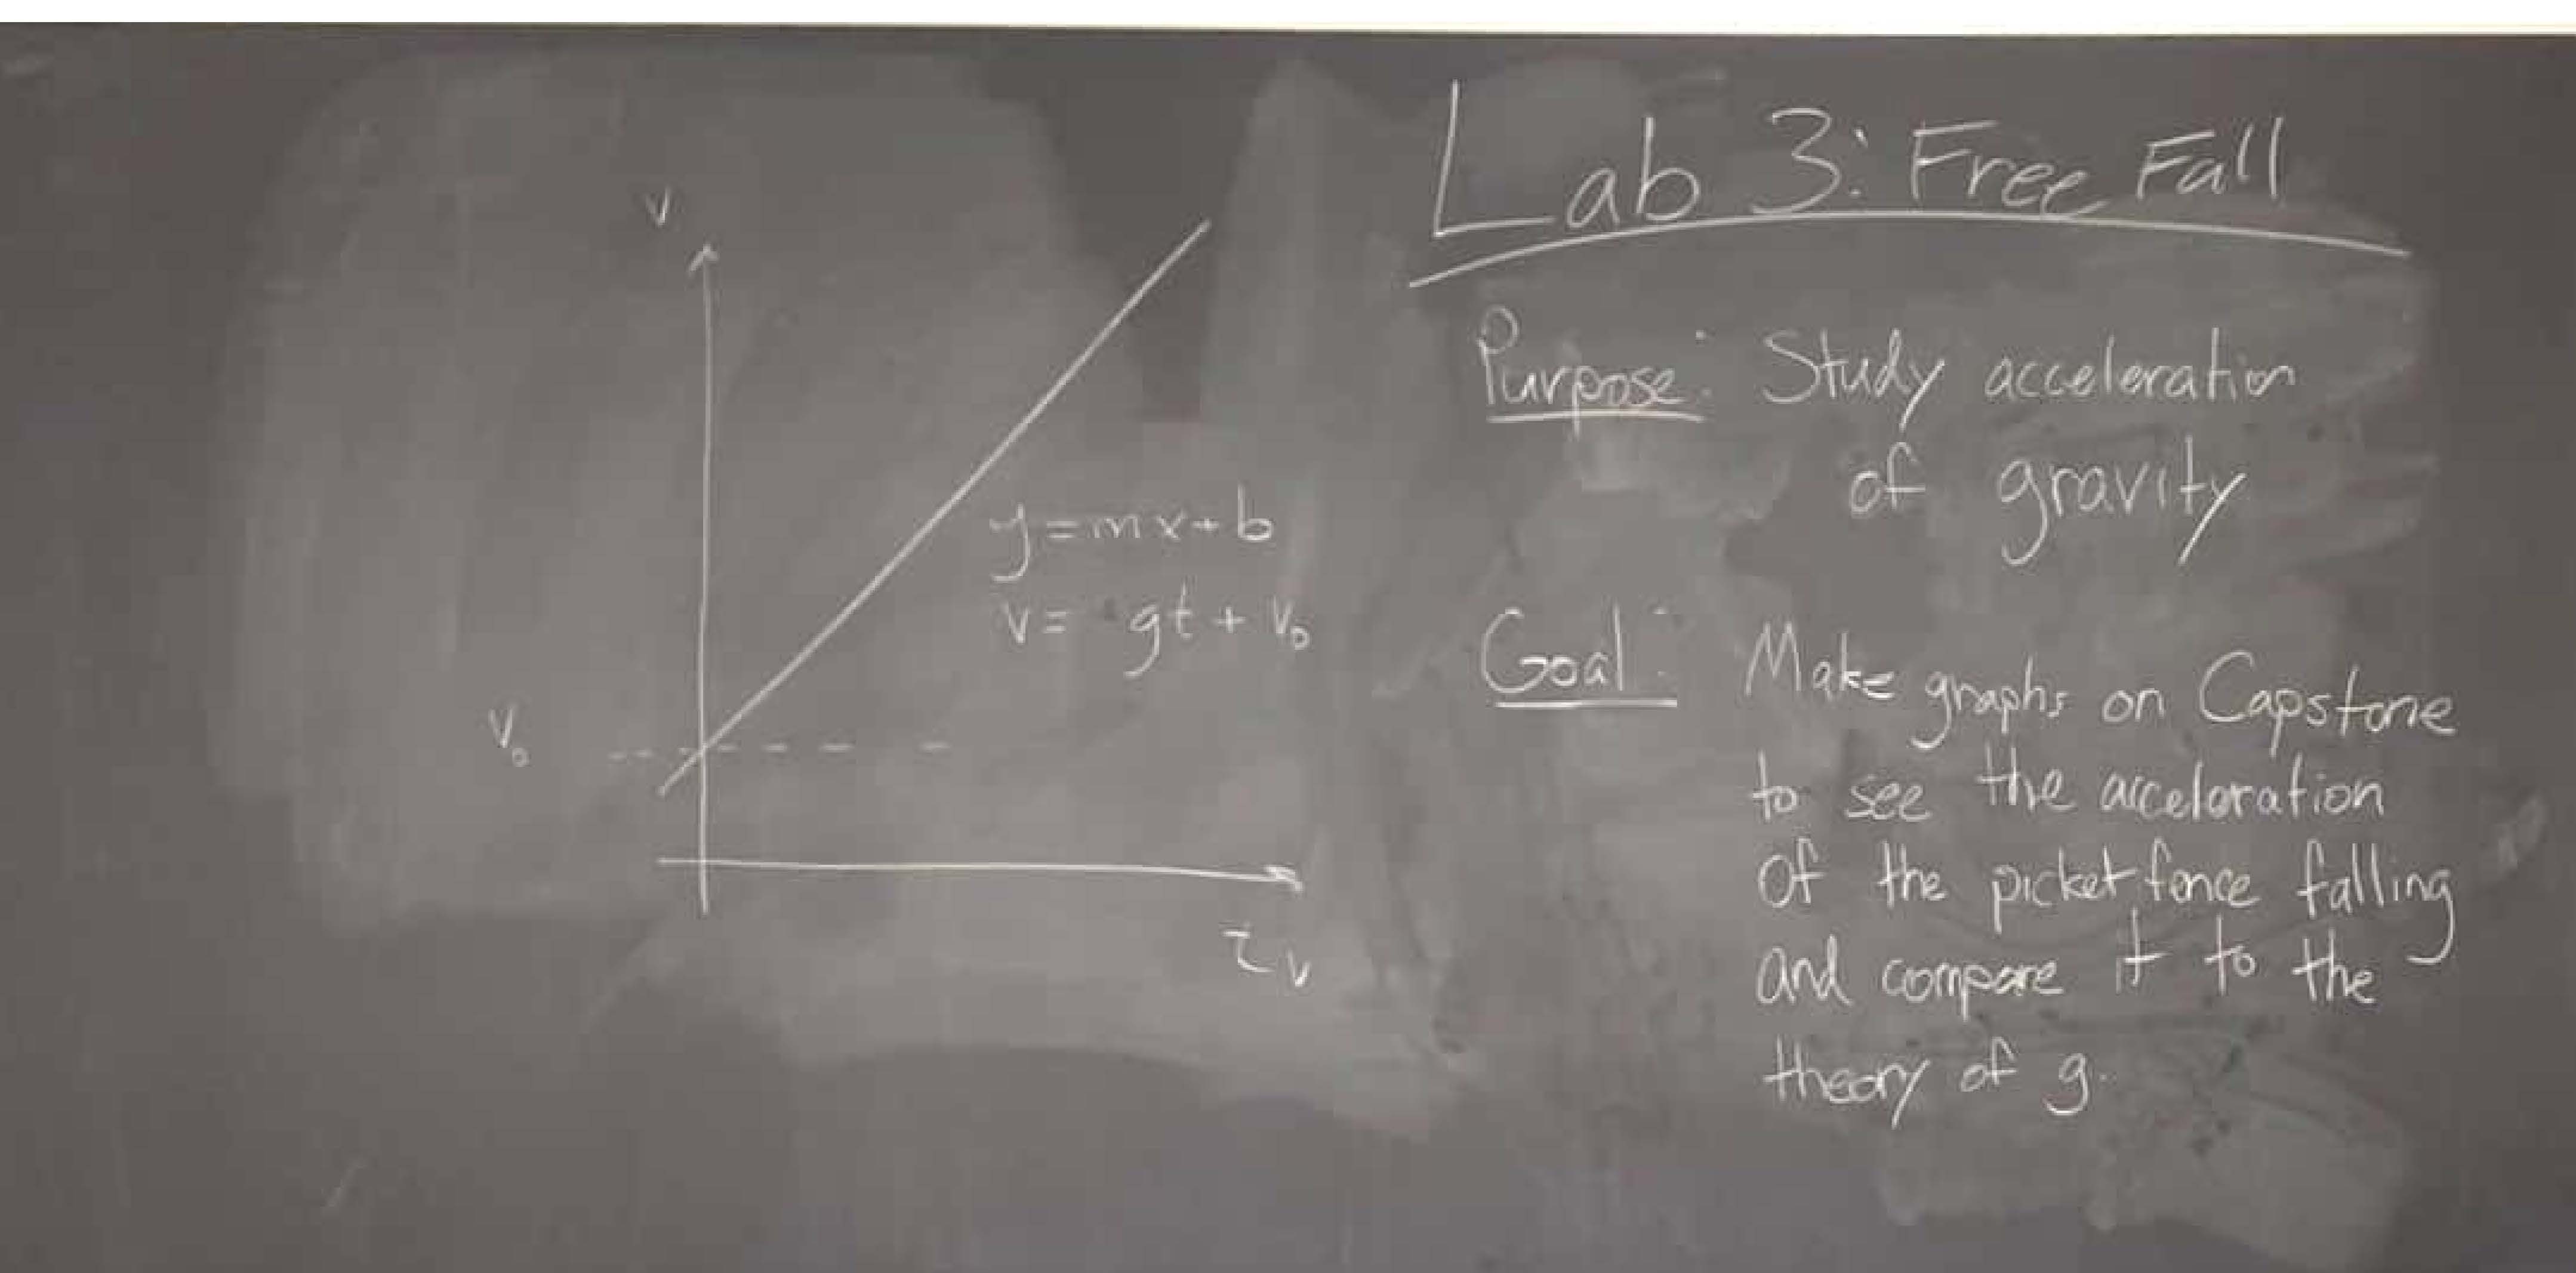 Lab 3: Free Fall
Purpose: Study acceleration
of gravity
Goal: Make graphs on Capstone
to see the acceleration
of the picket fence falling
and compare it to the
theory of g.
v
y = mx + b
v = gt + v₀
v₀